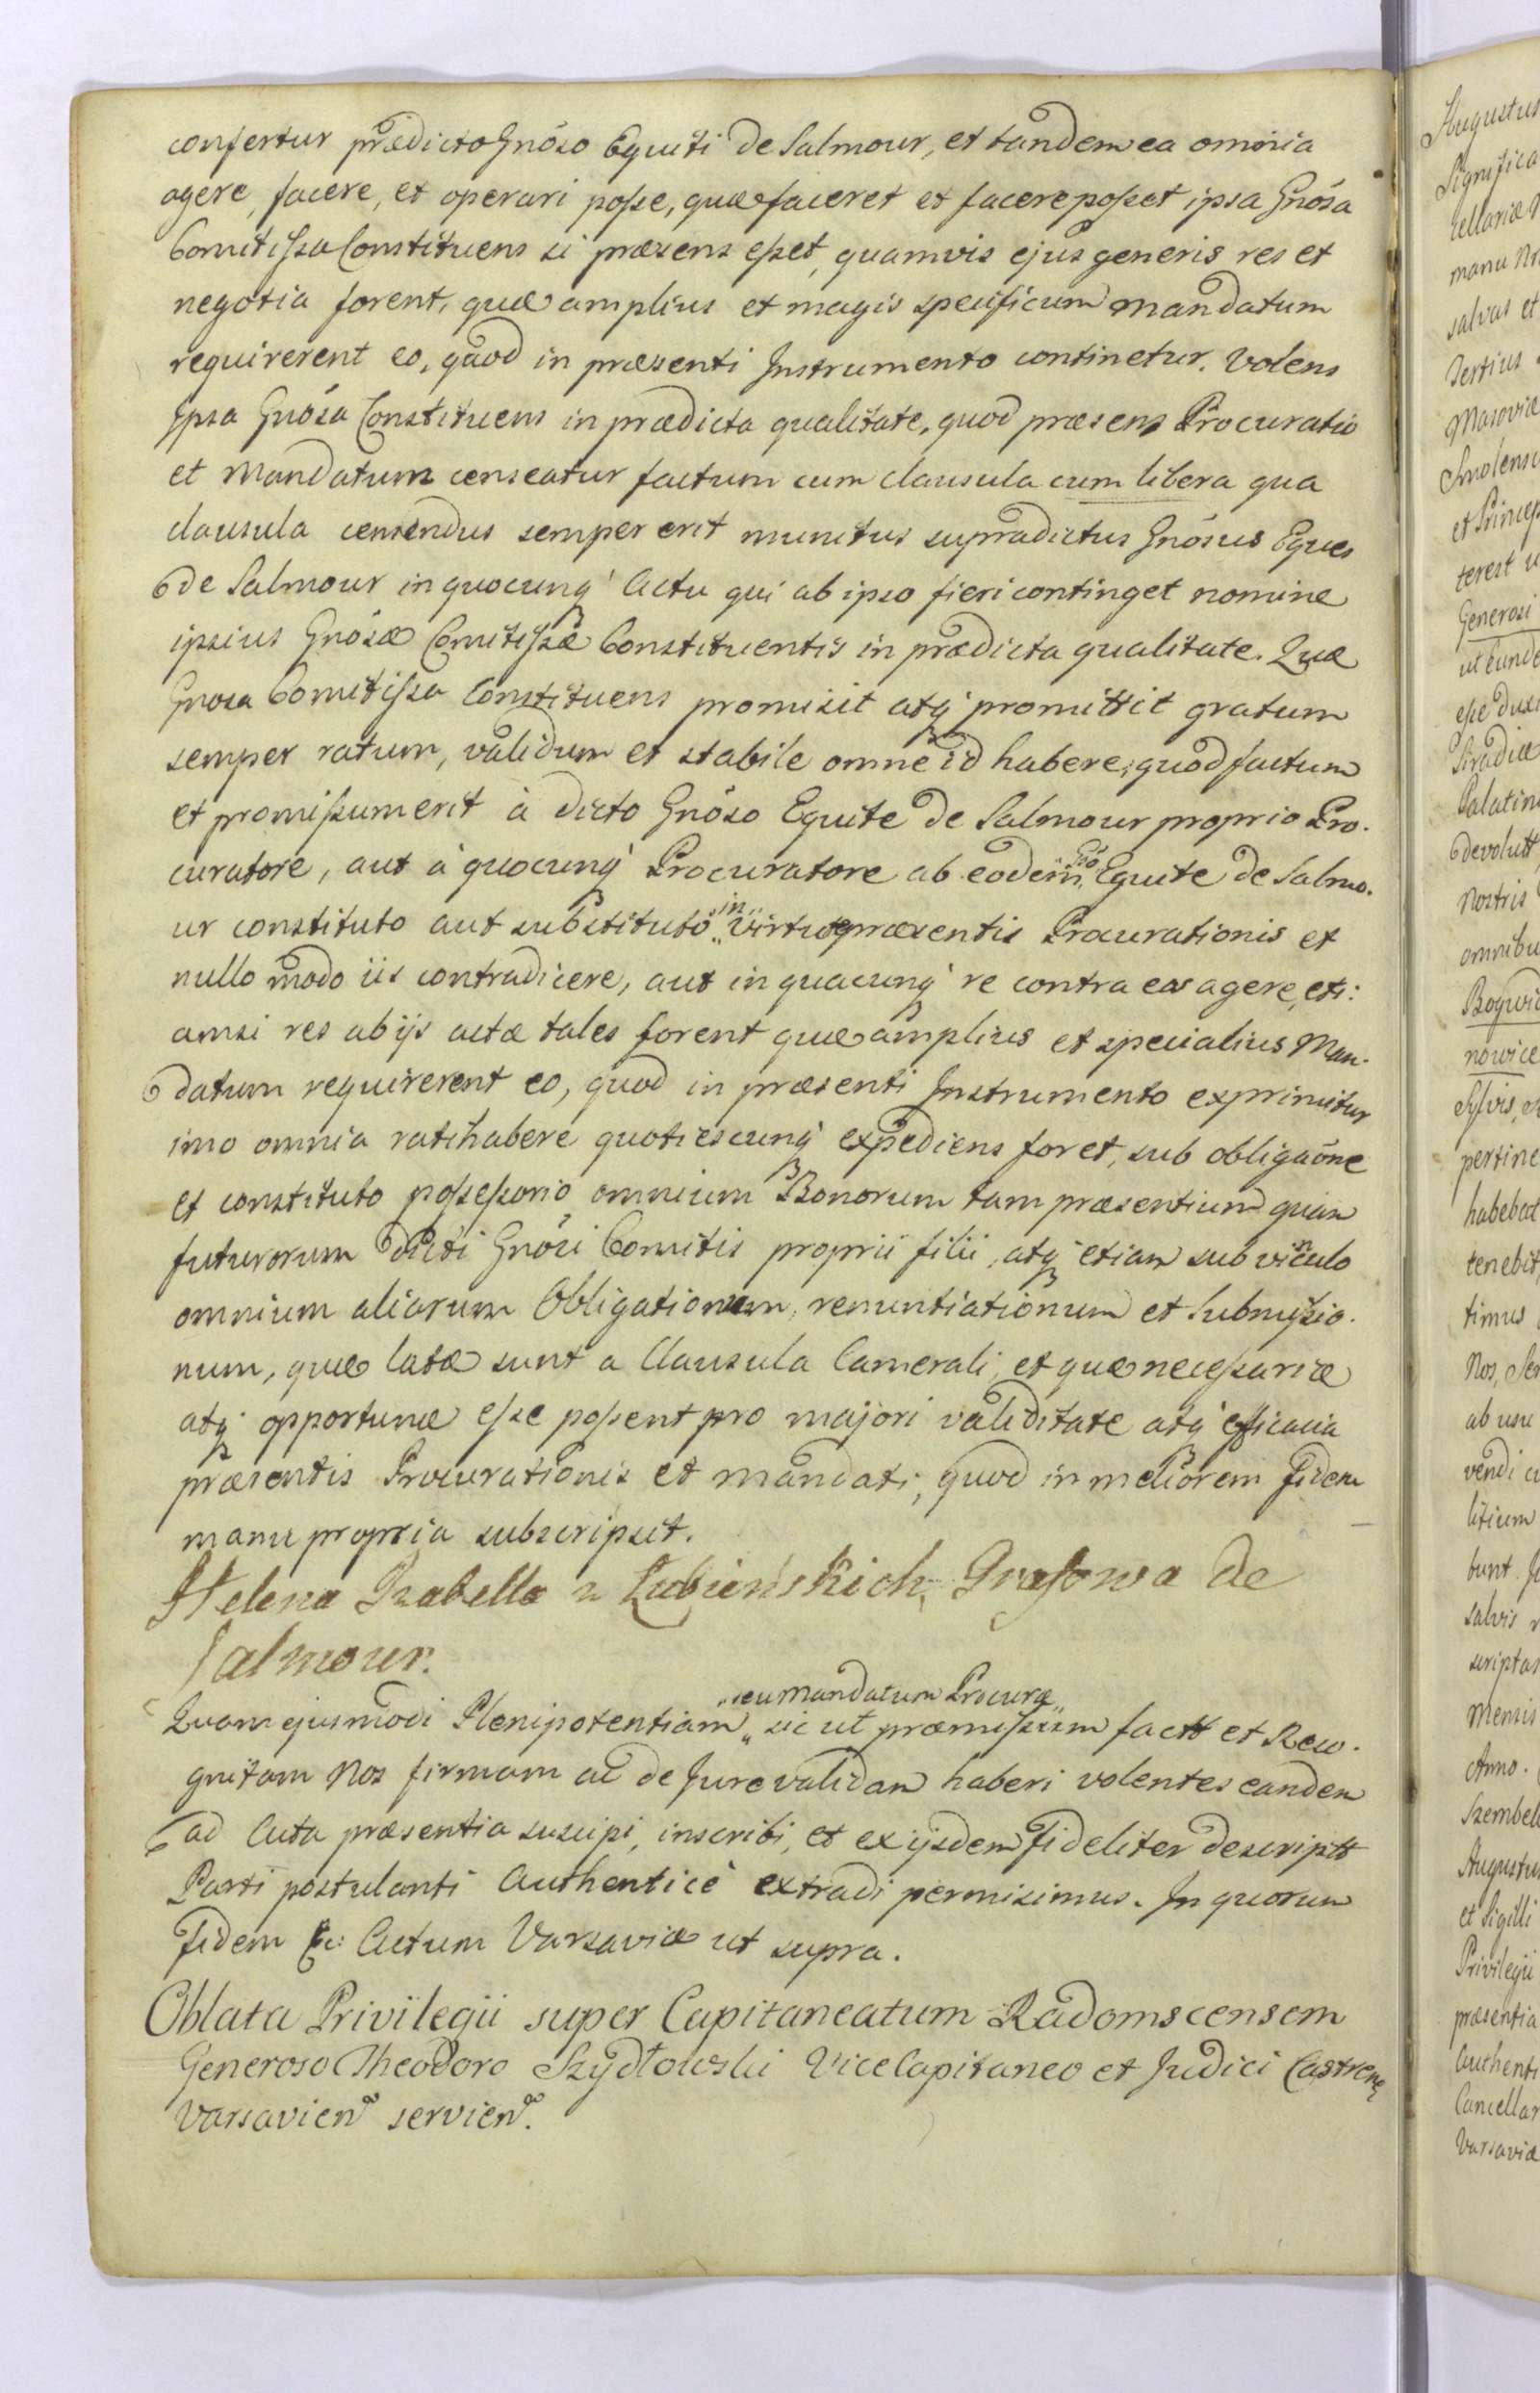 confertur prædicto Gnõso Equiti de Salmour, et tandem ea omnia
agere, facere, et operari posse, quæ faceret et facere posset ipsa Gnõsa
Comitissa Constituens si præsens esset, quamvis ejus generis res et
negotia forent, quæ amplius et magis specificum mandatum
requirerent eo, quod in præsenti Instrumento continetur. Volens
Ipsa Gnõsa Constituens in prædicta qualitate, quod præsens Procuratio
et Mandatum censeatur factum cum clausula cum libera qua
clausula censendus semper erit munitus supradictus Gnõsus Eques
de Salmour in quocunq' Actu qui ab ipso fieri continget nomine
ipsius Gnõsæ Comitissæ Constituentis in prædicta qualitate. Quæ
Gnosa Comitissa Constituens promisit atq' promittit gratum
semper ratum, validum et stabile omne id habere, quod factum
et promissum erit à dicto Gnõso Equite de Salmour proprio Pro.
curatore, aut à quocunq' Procuratore ab eodem Gõ Equite de Salmo.
ur constituto aut substituto „in„ virtute præsentis Procurationis et
nullo modo iis contradicere, aut in quacunq' re contra eas agere, eti:
amsi res ab ijs actæ tales forent quæ amplius et specialius Man.
datum requirerent eo, quod in præsenti Instrumento exprimitur
imo omnia ratihabere quotiescunq' expediens foret, sub obligaõne
et constituto possessorio omnium Bonorum tam præsentium quam
futurorum dicti Gnõsi Comitis proprii filii, atq' etiam sub vinculo
omnium aliarum Obligationum, renuntiationum et Submissio.
num, quæ latæ sunt a Clausula Camerali, et quæ necessariæ
atq' opportunæ esse possent pro majori validitate atq' efficacia
præsentis Procurationis et mandati, quod in meliorem fidem
manu propria subscripsit.
Helena Izabella z Łubieńskich, Grafowa de
Salmour.
Quam ejusmodi Plenipotentiam „seu mandatum Procuræ„ sic ut præmissum factt et Reco.
gnitam Nos firmam ac de Jure validam haberi volentes eandem
ad Acta præsentia suscipi, inscribi, et ex ijsdem fideliter descriptt
Parti postulanti Authenticè extradi permisimus. In quorum
Fidem &c: Actum Varsaviæ ut supra.
Oblata Privilegii super Capitaneatum Radomscensem
Generoso Theodoro Szydłowski ViceCapitaneo et Judici Castren
Varsavien servien.